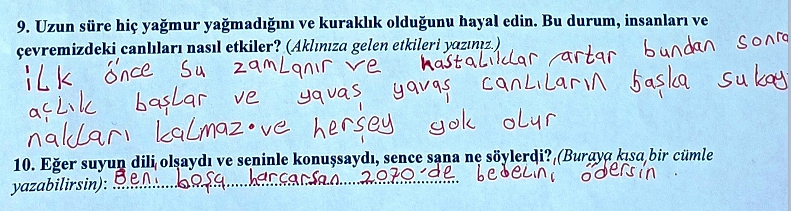 9. Uzun süre hiç yağmur yağmadığını ve kuraklık olduğunu hayal edin. Bu durum, insanları ve
çevremizdeki canlıları nasıl etkiler? (Aklınıza gelen etkileri yazınız.)
iLk önce su zamLanır ve hastaLıklar artar bundan sonra
açLık başLar ve yavaş yavaş canLıLarın başka su kay
nakları kaLmaz. ve herşey yok oLur
10. Eğer suyun dili olsaydı ve seninle konuşsaydı, sence sana ne söylerdi? (Buraya kısa bir cümle
yazabilirsin): Beni boşa harcarsan 2070'de bedeLini ödersin.